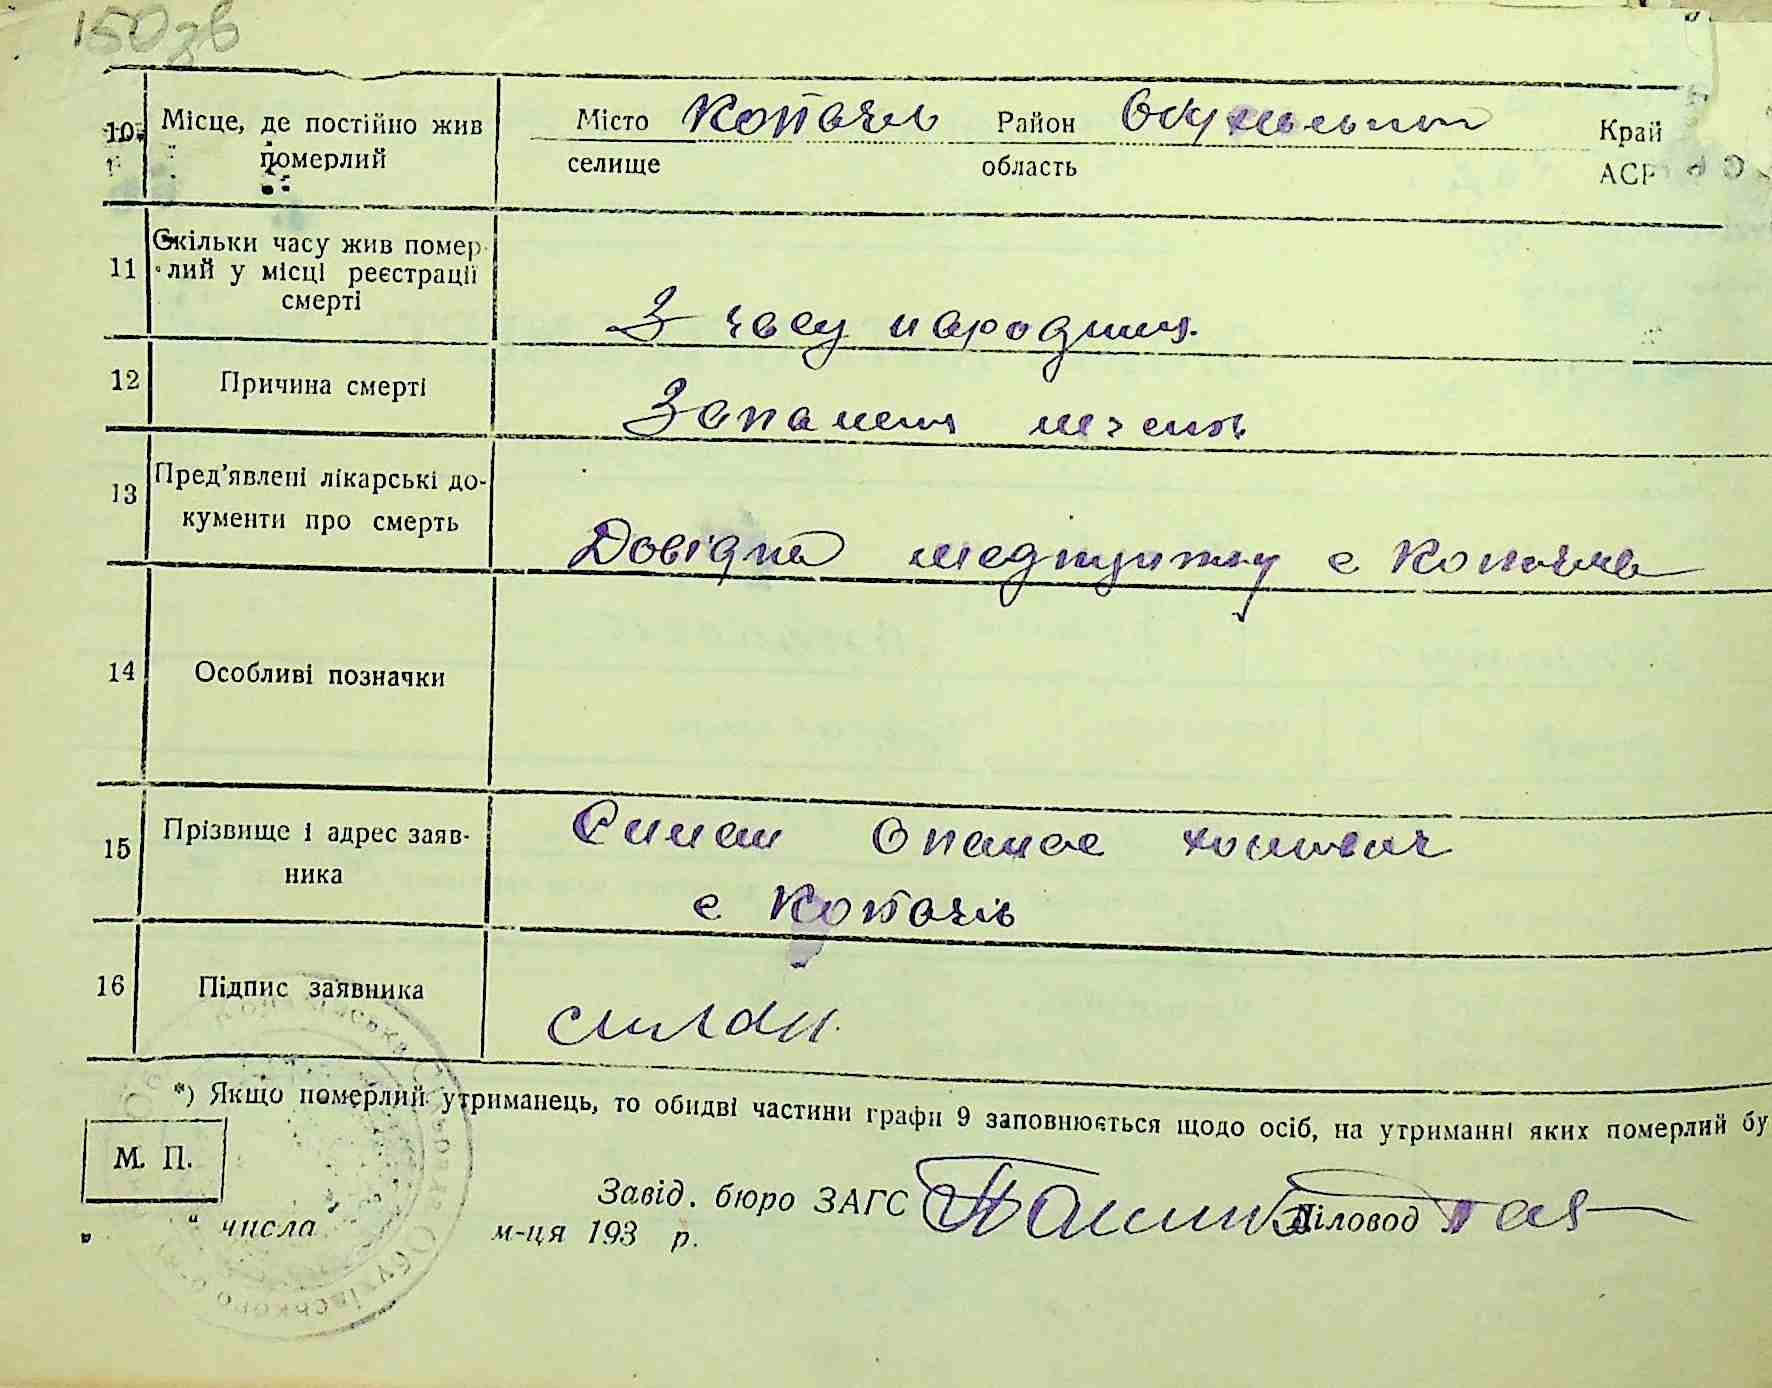 150зв
10. Місце, де постійно жив померлий Місто Копачів Район Обухівський Край
селище область АСР
11 Скільки часу жив померлий у місці реєстрації смерті
З часу народжиня.
12 Причина смерті
Запаленя
13 Пред'явлені лікарські документи про смерть
Довідка медпункту с Копачів
14 Особливі позначки
15 Прізвище і адрес заявника
Опанас
с Копачів
16 Підпис заявника
*) Якщо померлий утриманець, то обидві частини графи 9 заповнюється щодо осіб, на утриманні яких померлий бу
М. П.
Завід. бюро ЗАГС Діловод
„ “ числа м-ця 193 р.
Обухівського